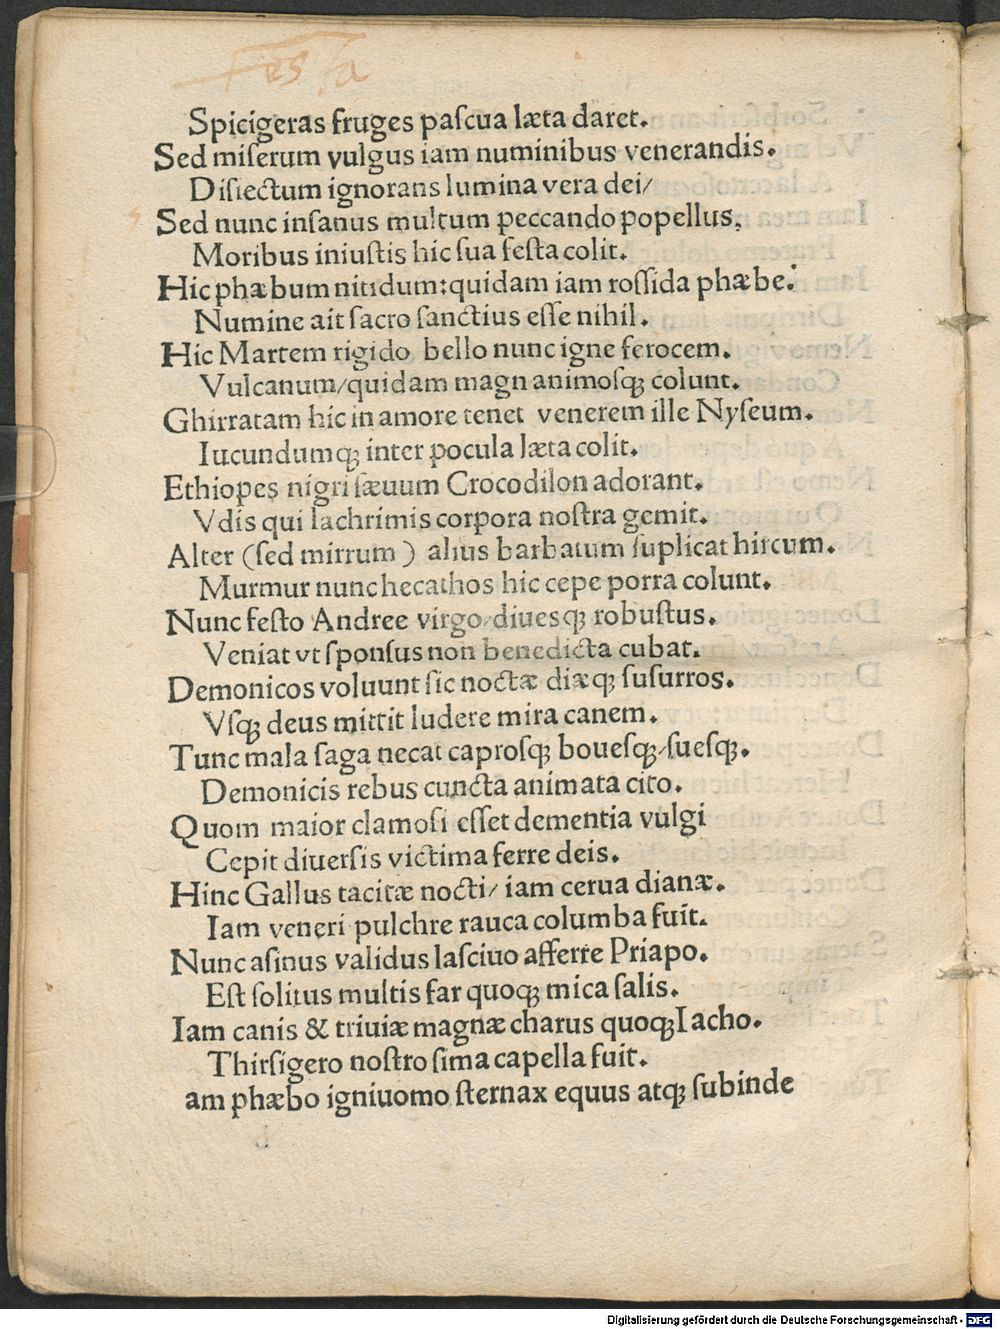 Festa
Spicigeras fruges paſcua læta daret.
Sed miſerum vulgus iam numinibus venerandis.
Diſiectum ignorans lumina vera dei/
Sed nunc inſanus multum peccando popellus.
Moribus iniuſtis hic ſua feſta colit.
Hic phæbum nitidum:quidam iam roſſida phæbe.
Numine ait ſacro ſanctius eſſe nihil.
Hic Martem rigido bello nunc igne ferocem.
Vulcanum/quidam magnanimoſqꝫ colunt.
Ghirratam hic in amore tenet venerem ille Nyſeum.
Iucundumqꝫ inter pocula læta colit.
Ethiopes nigri ſæuum Crocodilon adorant.
Vdis qui lachrimis corpora noſtra gemit.
Alter (ſed mirrum) alius barbatum ſuplicat hircum.
Murmur nunc hecathos hic cepe porra colunt.
Nunc feſto Andree virgo/diuesqꝫ robuſtus.
Veniat vt ſponſus non benedicta cubat.
Demonicos voluunt ſic noctæ diæqꝫ ſuſurros.
Vſqꝫ deus mittit ludere mira canem.
Tunc mala ſaga necat caproſqꝫ boueſqꝫ/ſueſqꝫ.
Demonicis rebus cuncta animata cito.
Quom maior clamoſi eſſet dementia vulgi
Cepit diuerſis victima ferre deis.
Hinc Gallus tacitæ nocti/ iam cerua dianæ.
Iam veneri pulchre rauca columba fuit.
Nunc aſinus validus laſciuo afferre Priapo.
Eſt ſolitus multis far quoqꝫ mica ſalis.
Iam canis & triuiæ magnæ charus quoqꝫ Iacho.
Thirſigero noſtro ſima capella fuit.
am phæbo igniuomo ſternax equus atqꝫ ſubinde
Digitalisierung gefördert durch die Deutsche Forschungsgemeinschaft - DFG